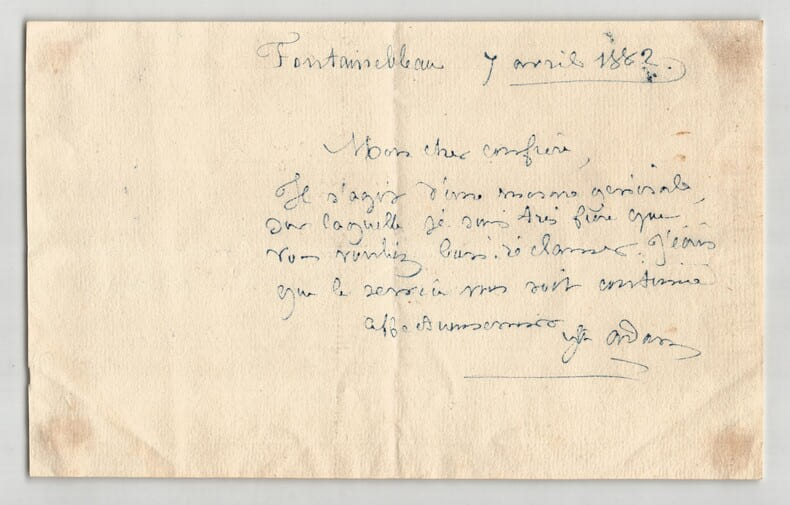 Fontainebleau 7 avril 1882.
Mon cher confrère,
Il s'agit d'une mesure générale
sur laquelle je suis très fière que
vous vouliez bien réclamer. J'écris
que le service vous soit continué
affectueusement Adam